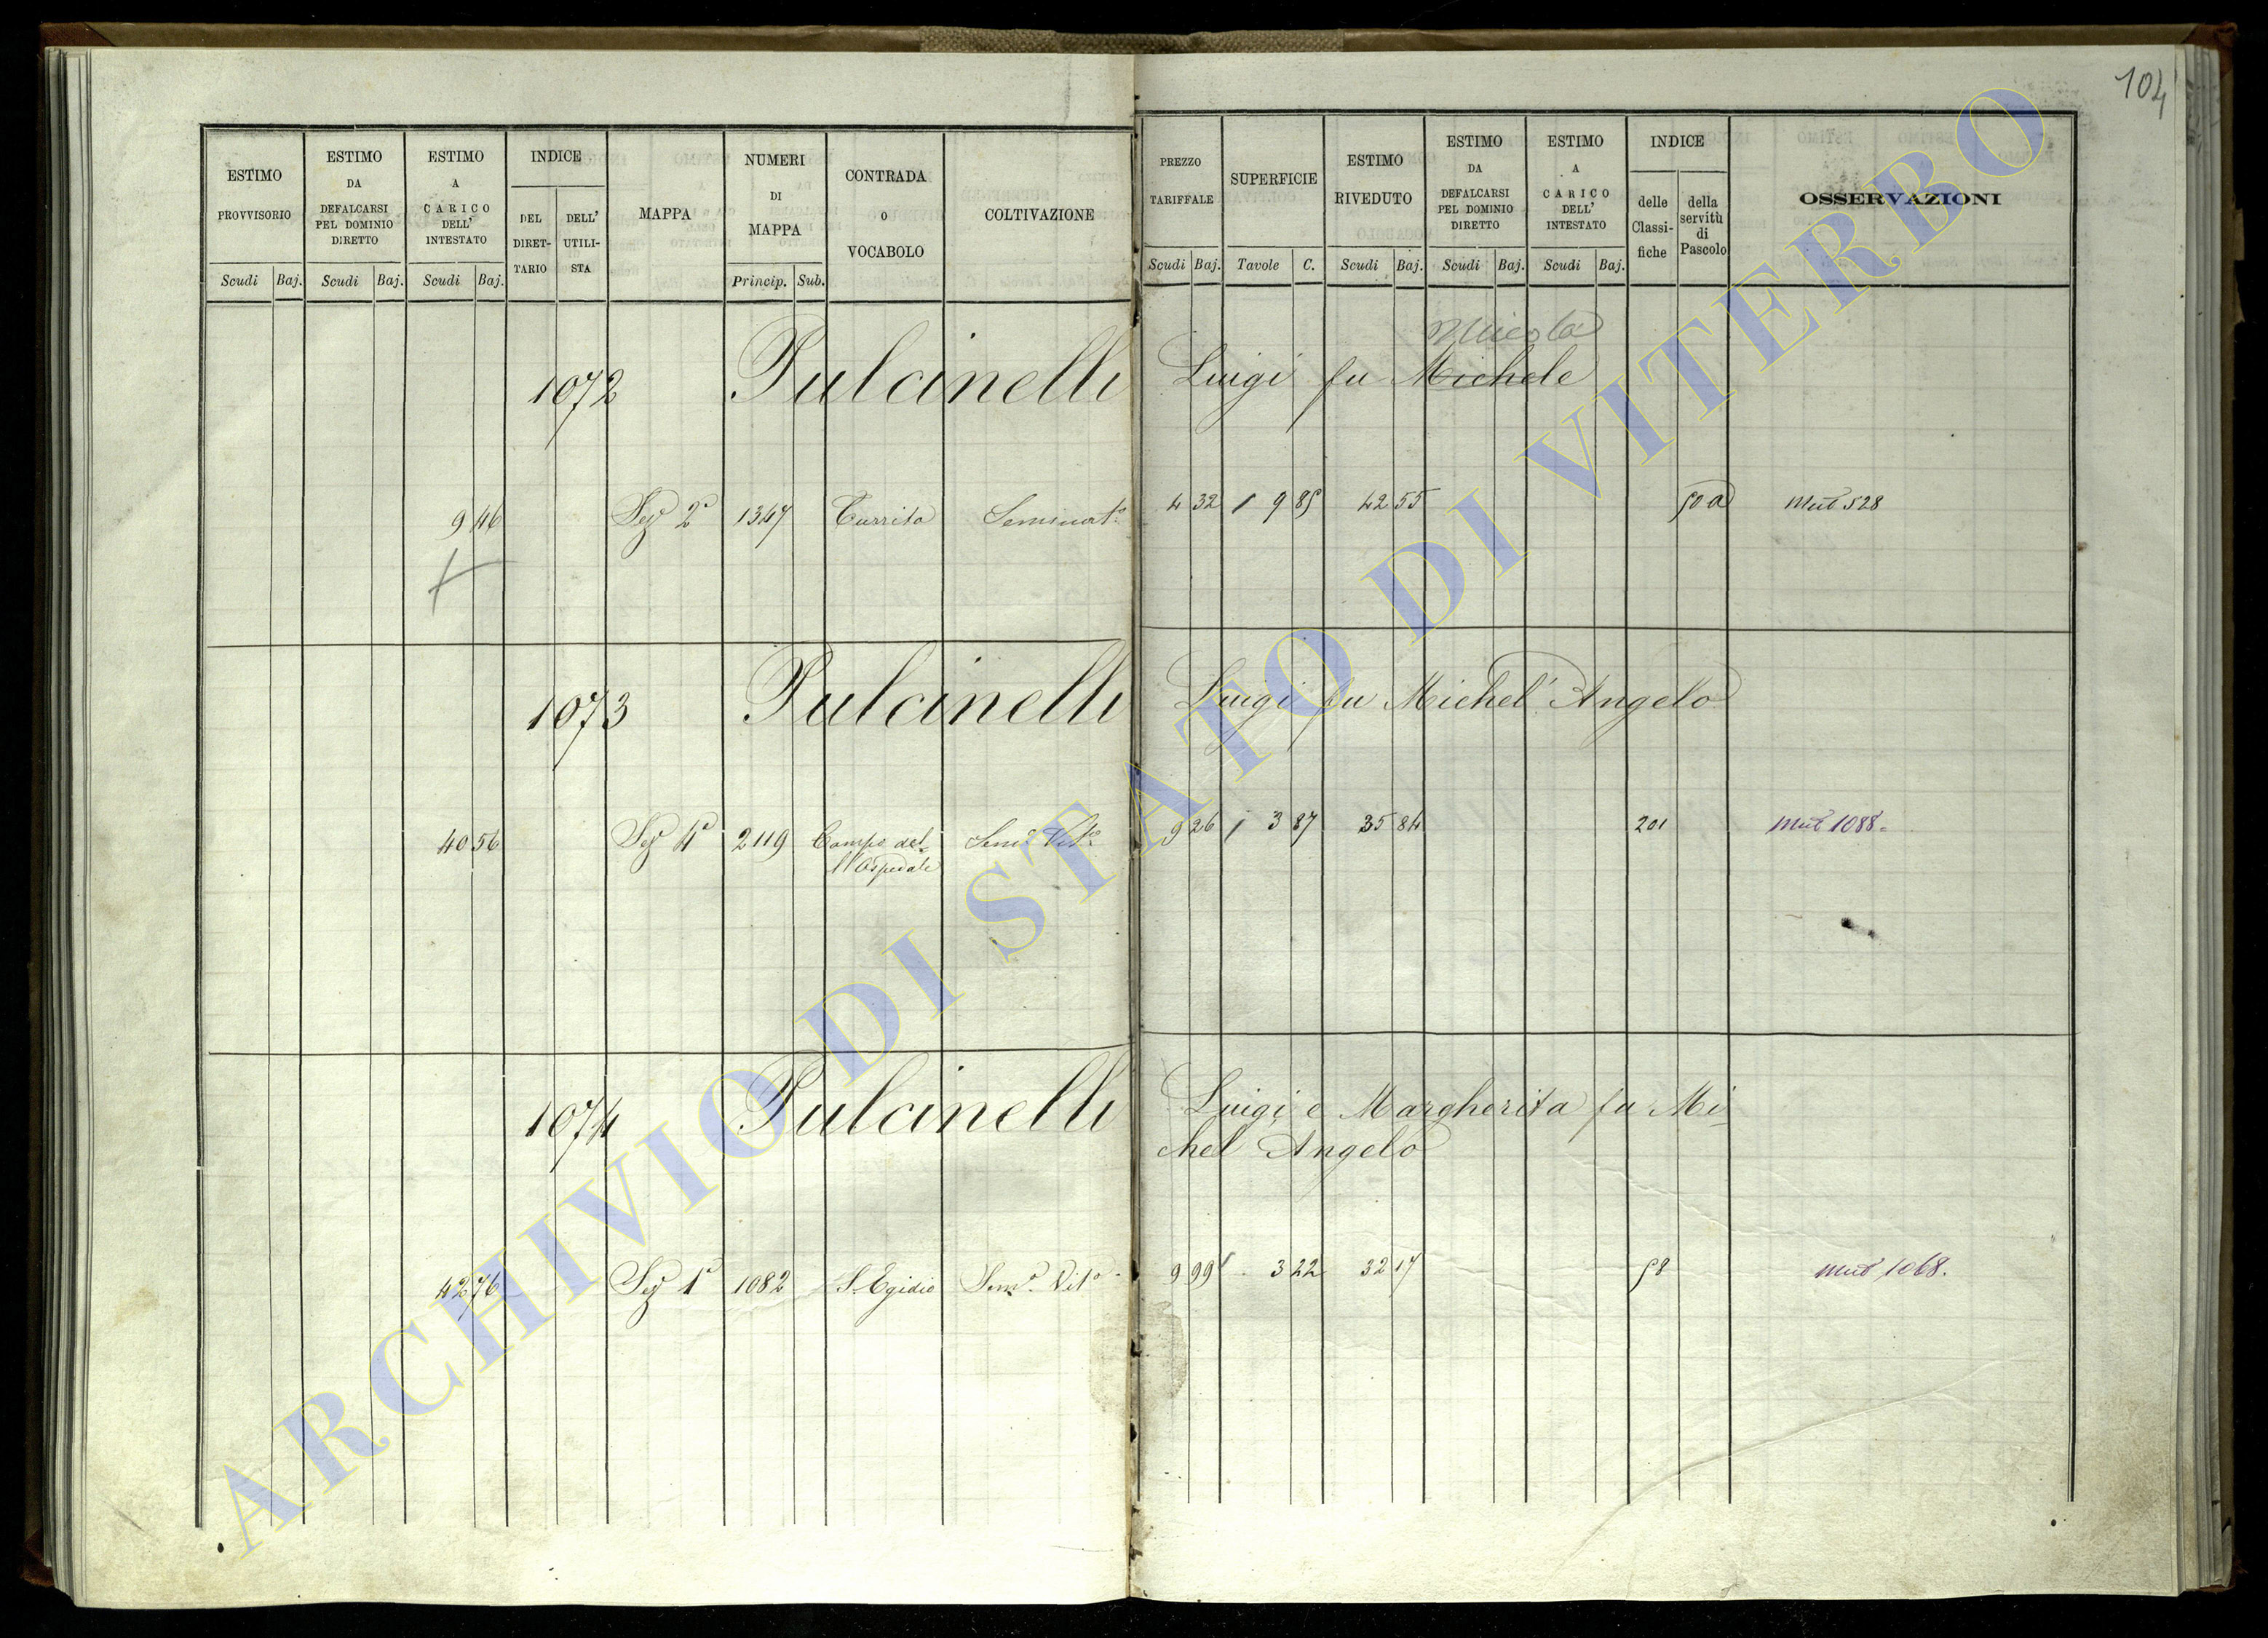 104
ESTIMO PROVVISORIO
ESTIMO DA DEFALCARSI PEL DOMINIO DIRETTO
ESTIMO A CARICO DELL' INTESTATO
INDICE
DEL DIRET-TARIO
DELL' UTILI-STA
MAPPA
NUMERI DI MAPPA
CONTRADA O VOCABOLO
COLTIVAZIONE
PREZZO TARIFFALE
SUPERFICIE
ESTIMO RIVEDUTO
ESTIMO DA DEFALCARSI PEL DOMINIO DIRETTO
ESTIMO A CARICO DELL' INTESTATO
INDICE
delle Classi-fiche
della servitù di Pascolo
OSSERVAZIONI
Scudi Baj. Scudi Baj. Scudi Baj. Princip. Sub. Scudi Baj. Tavole C. Scudi Baj. Scudi Baj. Scudi Baj.
Nicola
1072 Pulcinelli Luigi fu Michele
9 46 Sez 2ª 1347 Turrita Seminatº 4 32 1 9 85 42 55 50 a Mut 528
1073 Pulcinelli Luigi fu Michel' Angelo
40 56 Sez 4ª 2119 Campo del- Semº Vitº 9 26 1 3 87 35 84 201 Mut 1088
l'Ospedale
1074 Pulcinelli Luigi e Margherita fu Mi-
chel Angelo
42 76 Sez 1ª 1082 S. Egidio Semº Vitº 9 99 3 22 32 17 58 Mut 1068.
ARCHIVIO DI STATO DI VITERBO